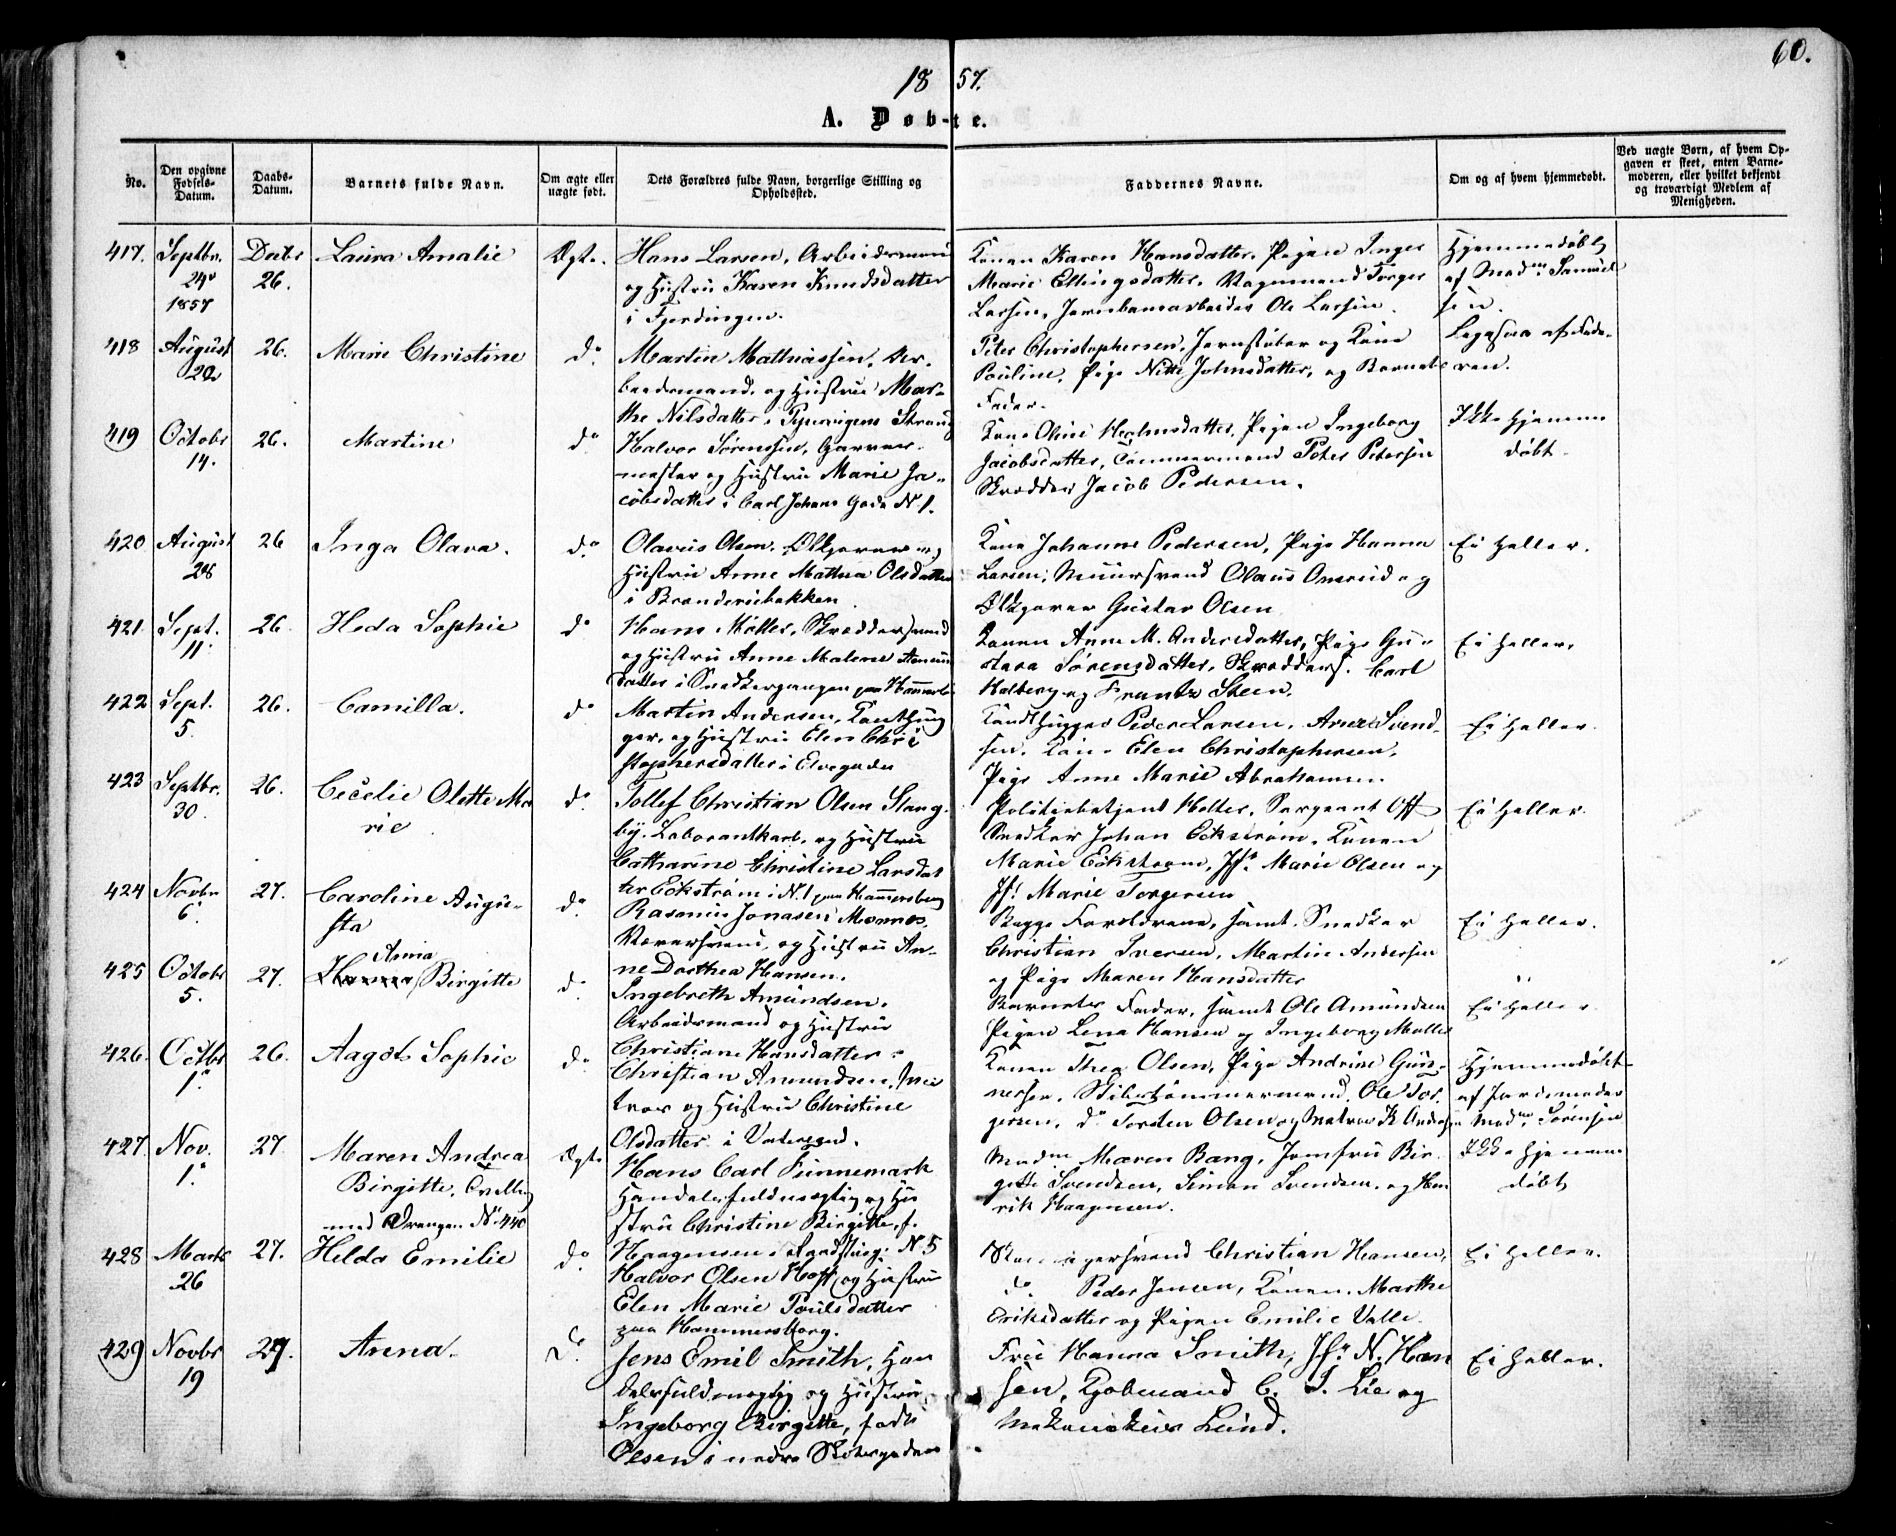 60.
1857.
A. Døbte.
No.
Den opgivne Fødsels-Datum.
Daabs-Datum.
Barnets fulde Navn.
Om ægte eller uægte født.
Dets Forældres fulde Navn, borgerlige Stilling og Opholdssted.
Faddernes Navne.
Om og af hvem hjemmedøbt.
Ved uægte Børn, af hvem Opgaven er skeet, enten Barnemoderen, eller hvilket bekjendt og troværdigt Medlem af Menigheden.
417. Septbr. 24de 1857
Decbr 26.
Laura Amalie
Ægte.
Hans Larsen, Arbeidsmand
og Hustru Karen Knudsdatter
i Fjerdingen.
Konen Karen Hansdatter, Pigen Inger
Marie Ellingsdatter, Vognmand Torger
Larsen, Jernbanearbeider Ole Larsen.
Hjemmedøbt
af Madm. Samuel
sen.
418 August 22
26.
Marie Christine
do
Martin Mathiassen, Ar-
beidsmand, og Hustru Mar-
the Nilsdatter i Pipervigens Strand
Peter Christophersen, Jernstøber og Kone
Pauline, Pige Nitte Johnsdatter, og Barnets
Fader.
af Fade-
ren.
419 Octobr 14.
26.
Martine
do
Halvor Sørenssen, Garver-
mester og Hustru Marie Ja-
cobsdatter i Carl Johans Gade N 1.
Kone Oline Holmsdatter, Pigen Ingeborg
Jacobsdatter, Tømmermand Peter Petersen
Skrædder Jacob Pedersen.
Ikke hjemme
døbt.
420 August 28
26
Inga Olava.
do
Olavus Olsen, Ølkjører og
Hustru Anne Mathea Olsdatter
i Brenneribakken
Kone Johanne Pedersen, Pige Hanna
Larsen, Muursvend Olaus Omsrud og
Ølkjører Gustav Olsen
Ei heller.
421. Sept. 11
26
Heda Sophie
do
Hans Møller, Skræddersvend
og Hustru Anne Malene Amund
datter i Snedkergangen paa Hammersb
Konen Anne M. Andersdatter, Pige Gu-
stava Sørensdatter, Skrædders. Carl
Holberg og Frantz Steen.
Ei heller.
422 Sept. 5.
26.
Camilla.
do
Martin Andersen, Kanthug
ger, og Hustru Elen Chri
stophersdatter i Elvegaden
Kandthugger Peder Larsen, Arne Svend-
sen, Kone Elen Christophersen,
Pige Anne Marie Abrahamsen.
Ei heller.
423 Septbr. 30.
26.
Cecelie Olette Ma
rie
do
Tollef Christian Olsen Slang-
by, Laborantkarl, og Hustru
Catharine Christine Larsdat
ter Eckstrøm i N. 1 paa Hammersborg
Politibetjent Holter, Sergeant Off
Snedker Johan Eckstrøm, Konen
Marie Eckstrøm, Jfr Marie Olsen og
Jfr. Marie Torgersen
Ei heller.
424 Novbr 6.
27.
Caroline Augu-
sta
do
Rasmus Jonasen Mønnes,
Væversvend, og Hustru An-
ne Dorthea Hansen.
Begge Forældrene, samt Snedker
Christian Iversen, Martin Andersen
og Pige Maren Hansdatter
Ei heller.
425 Octobr 5.
27.
Anna
Birgitte
do
Ingebreth Amundsen,
Arbeidsmand og Hustru
Christiane Hansdatter
Barnets Fader, samt Ole Amundsen
Pigen Lena Hansen og Ingeborg Møller
Ei heller
426. Octbr 1.
26.
Aagot Sophie
do
Christian Amundsen,
tros og Hustru Christine
Olsdatter i Vatergad.
Konen Thea Olsen, Pige Andrine Gun-
nersen, Skibstømmermand Ole Tor-
gersen, do Torsten Olsen og Matros K Anders
Hjemmedøbt
af Jordemoder
Madme Sørensen
427. Nov. 1.
27
Maren Andrea
Birgitte, Tvilling
med Drengen No 440
Ægte
Hans Carl Finnemark
Handelsfuldmægtig og Hu
stru Christine Birgitte, f.
Haagensen i N. 5
Madme Maren Bang, Jomfru Bir-
gitte Svendsen, Simon Svendsen, og Hen
rik Haagensen.
Ikke hjemme
døbt
428 Marts 26
27.
Helda Emilie
do
Halvor Olsen Hoff, og Hustru
Elen Marie Poulsdatter
paa Hammersborg.
svend Christian Hansen,
do Peder Jensen, Konen Marthe
Eriksdatter og Pigen Emilie Valle.
Ei heller.
429 Novbr 19
27.
Arena.
do
Jens Emil Smith, Han
delsfuldmægtig og Hustru
Ingeborg Birgitte, født
Olsen i nedre Slotsgaden
Fru Hanna Smith, Jfr. N. Han
sen, Kjøbmand C. J. Lie og
Mekanikus Lund.
Ei heller.